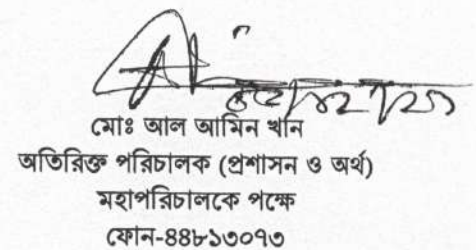 মোঃ আল আমিন খান
অতিরিক্ত পরিচালক (প্রশাসন ও অর্থ)
মহাপরিচালকে পক্ষে
ফোন-৪৪৮১৩০৭৩